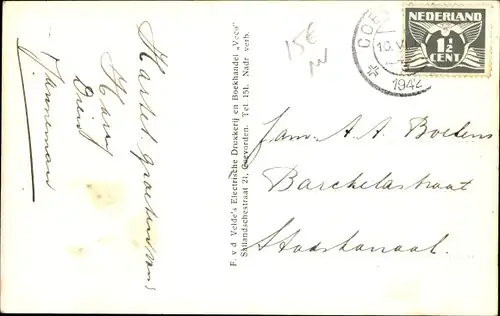 Hartel. groeten van:
Harry
Dient
Janneman
F. v d Velde's Electrische Drukkerij en Boekhandel „Veco"
Sallandschestraat 21, Coevorden. Tel 151. Nadr verb.
15€
COE
10.V
1942
NEDERLAND
1½
CENT
Fam. A. A. Boelens
Barchelastraat
Stadskanaal.